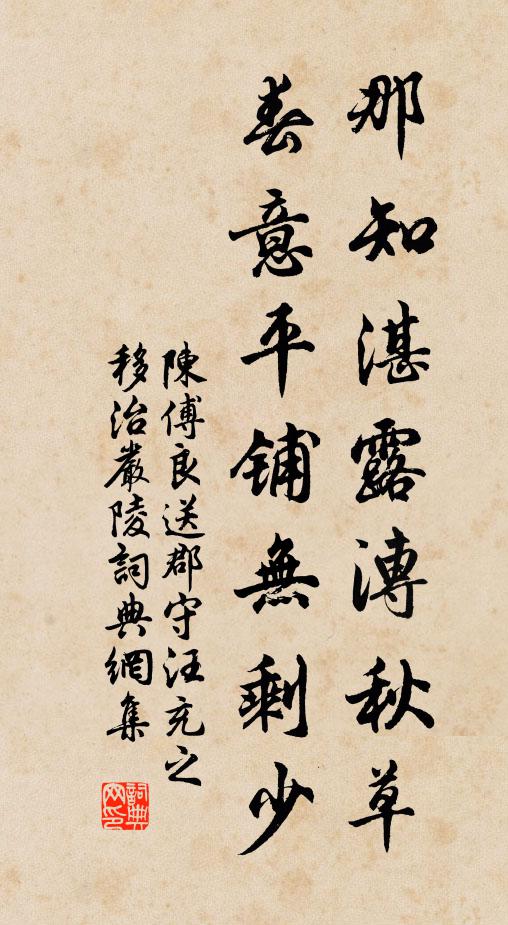 那知湛露漙秋草
春意平鋪無剩少
陳傅良送郡守汪充之
移治嚴陵詞典網集
詞典网印